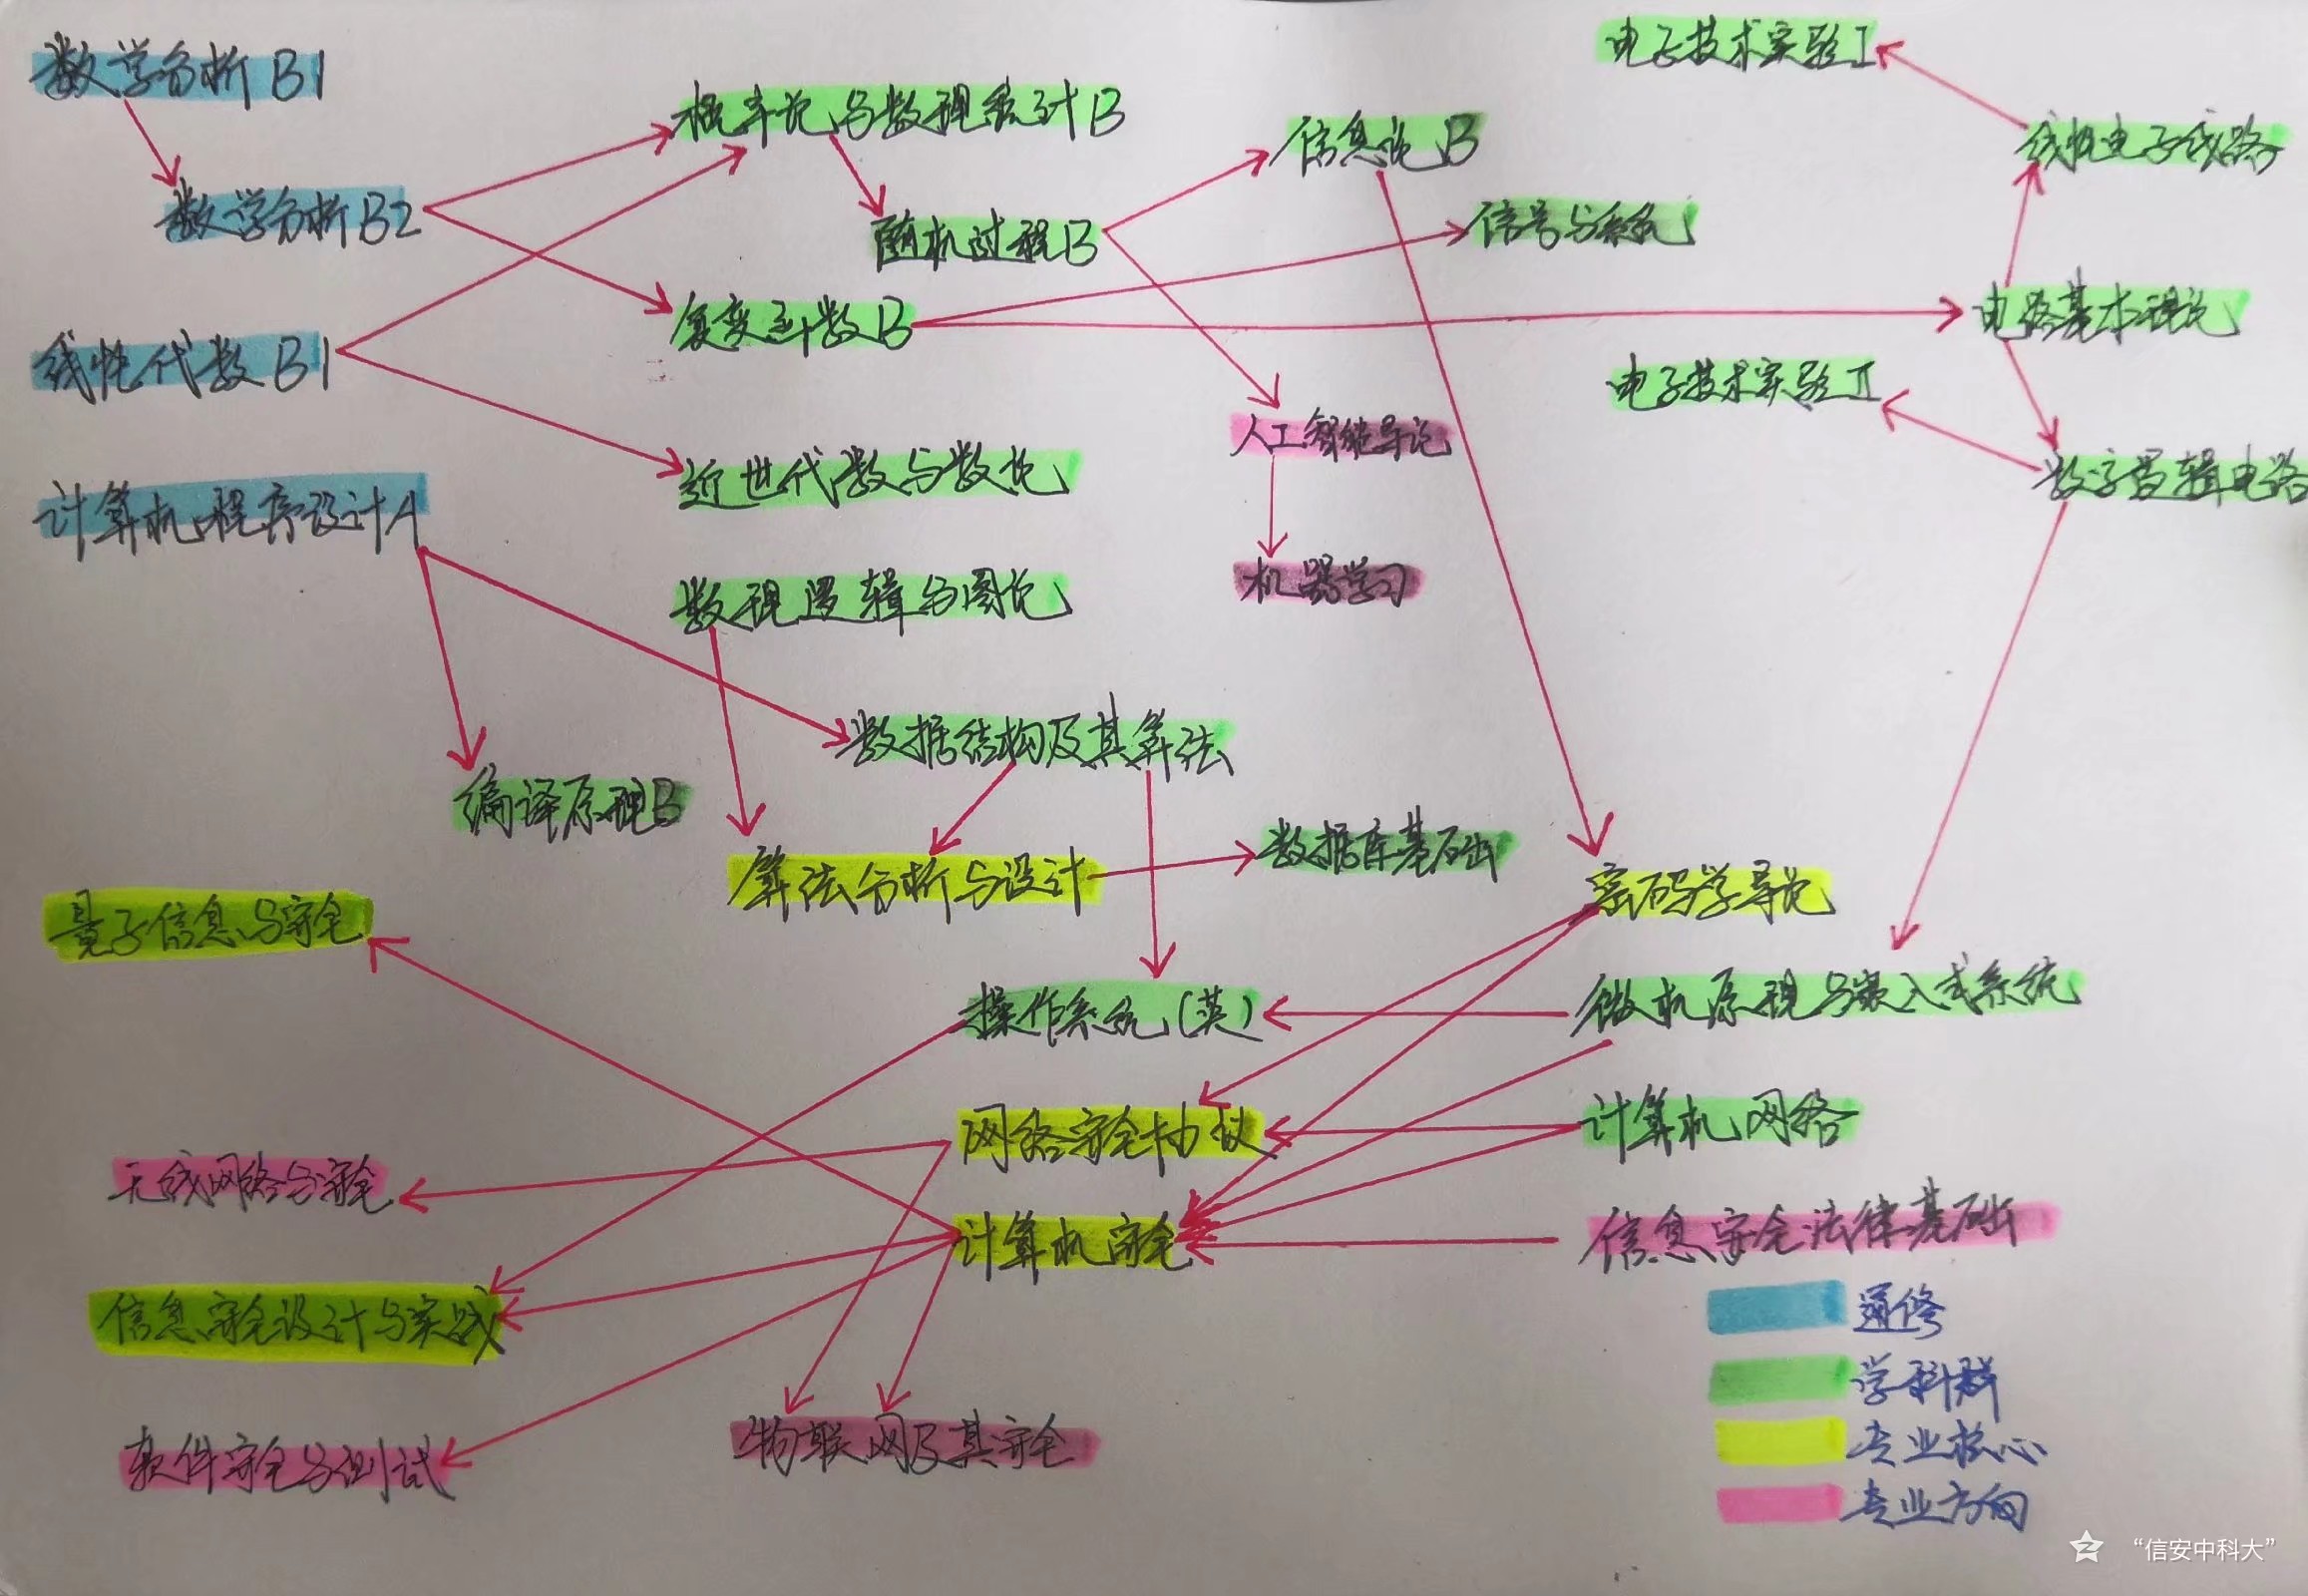 数学分析B1
数学分析B2
线性代数B1
计算机程序设计A
概率论与数理统计B
随机过程B
复变函数B
近世代数与数论
数理逻辑与图论
数据结构及其算法
编译原理B
算法分析与设计
数据库基础
信息论B
信号与系统
人工智能导论
机器学习
电子技术实验I
线性电子线路
电路基本理论
电子技术实验II
数字逻辑电路
密码学导论
微机原理与嵌入式系统
操作系统(英)
网络安全协议
计算机网络
计算机安全
信息安全法律基础
量子信息与安全
无线网络与安全
信息安全设计与实践
软件安全与测试
物联网及其安全
通修
学科群
专业核心
专业方向
“信安中科大”